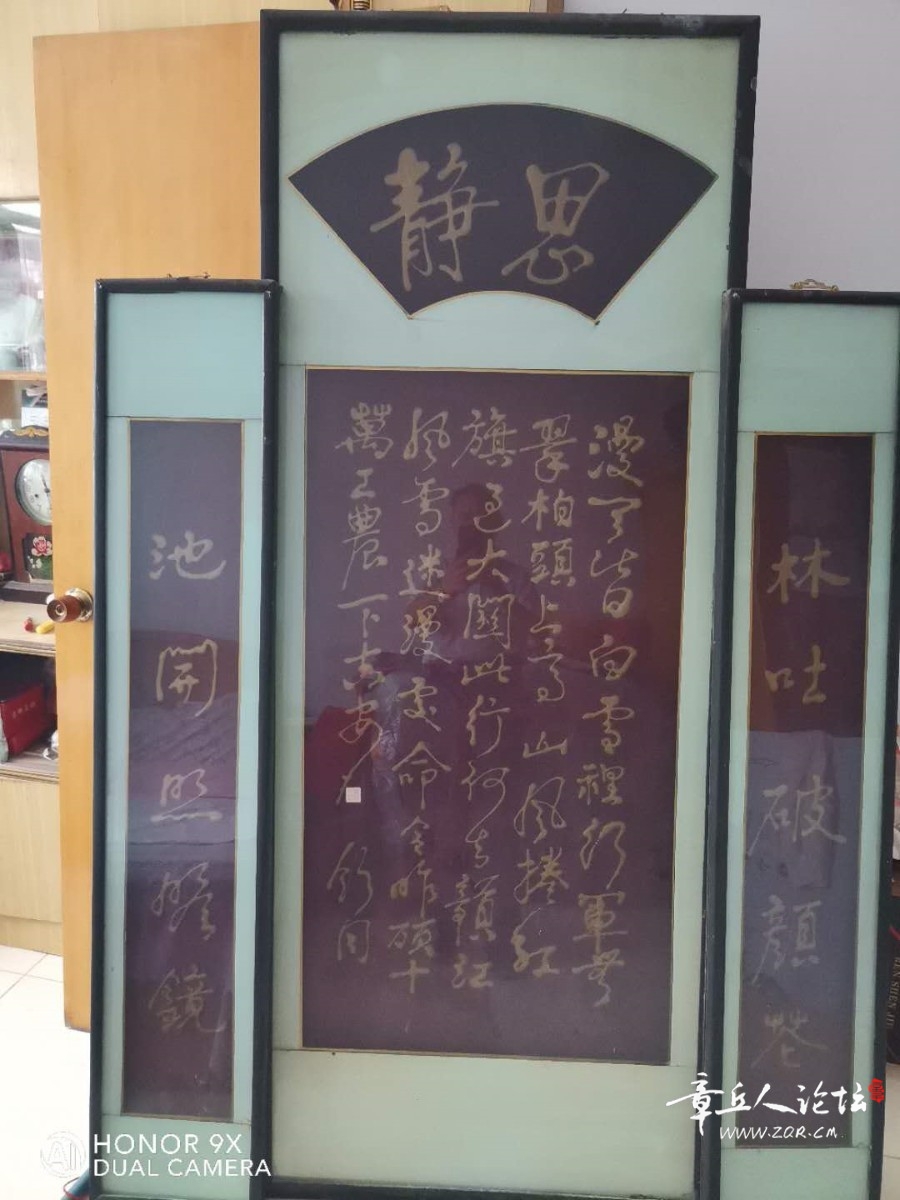 静思
漫天皆白雪裡行軍無
翠柏頭上高山風捲紅
旗過大關此行何去贛江
風雪迷漫處命令昨頒十
萬工農下吉安
舒同
林吐破顏花
池開照膽鏡
章丘人论坛
WWW.ZQR.CM
AI
HONOR 9X
DUAL CAMERA